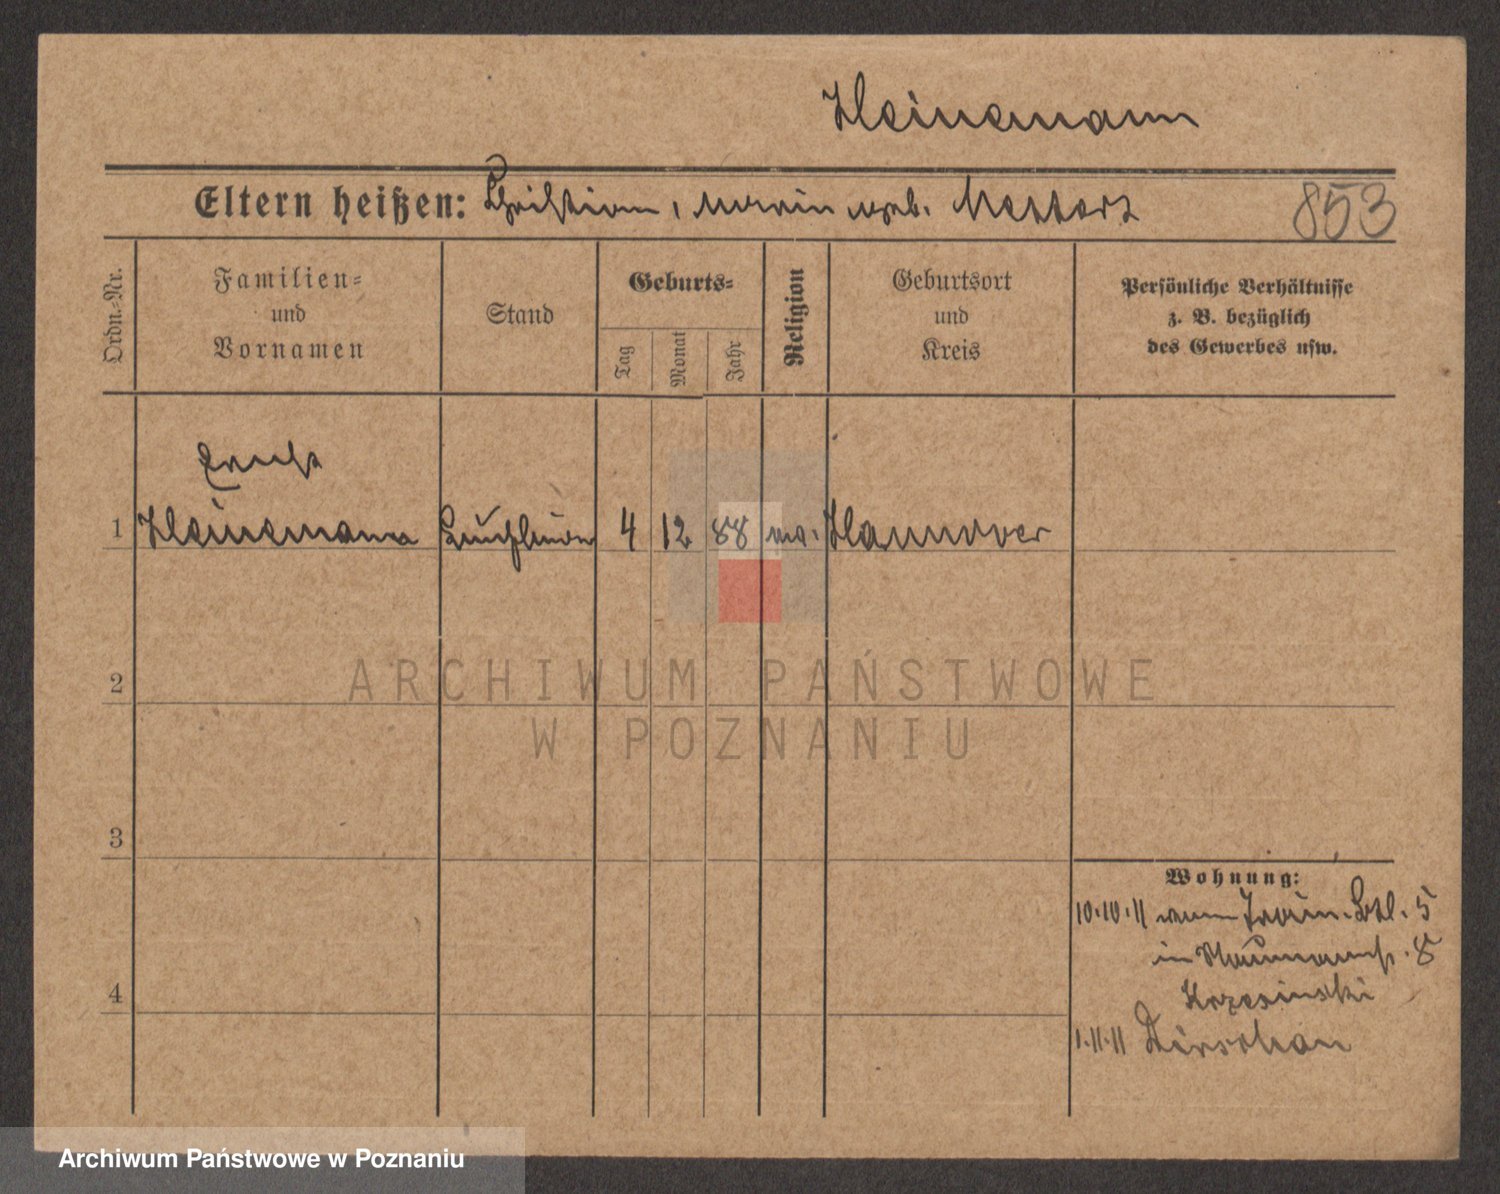 Heinemann
Eltern heißen: Christian, Marie geb. Mettert
853
Ordn.-Nr.
Familien-
und
Vornamen
Stand
Geburts-
Tag
Monat
Jahr
Religion
Geburtsort
und
Kreis
Persönliche Verhältnisse
z. B. bezüglich
des Gewerbes usw.
Ernst
1 Heinemann 4 12 88 ev. Hannover
2
3
4
Wohnung:
10.10.11 vom Train. Btl. 5
in Naumannst. 8
Krzesinski
1.11.11 Dirschau
ARCHIWUM PAŃSTWOWE
W POZNANIU
Archiwum Państwowe w Poznaniu